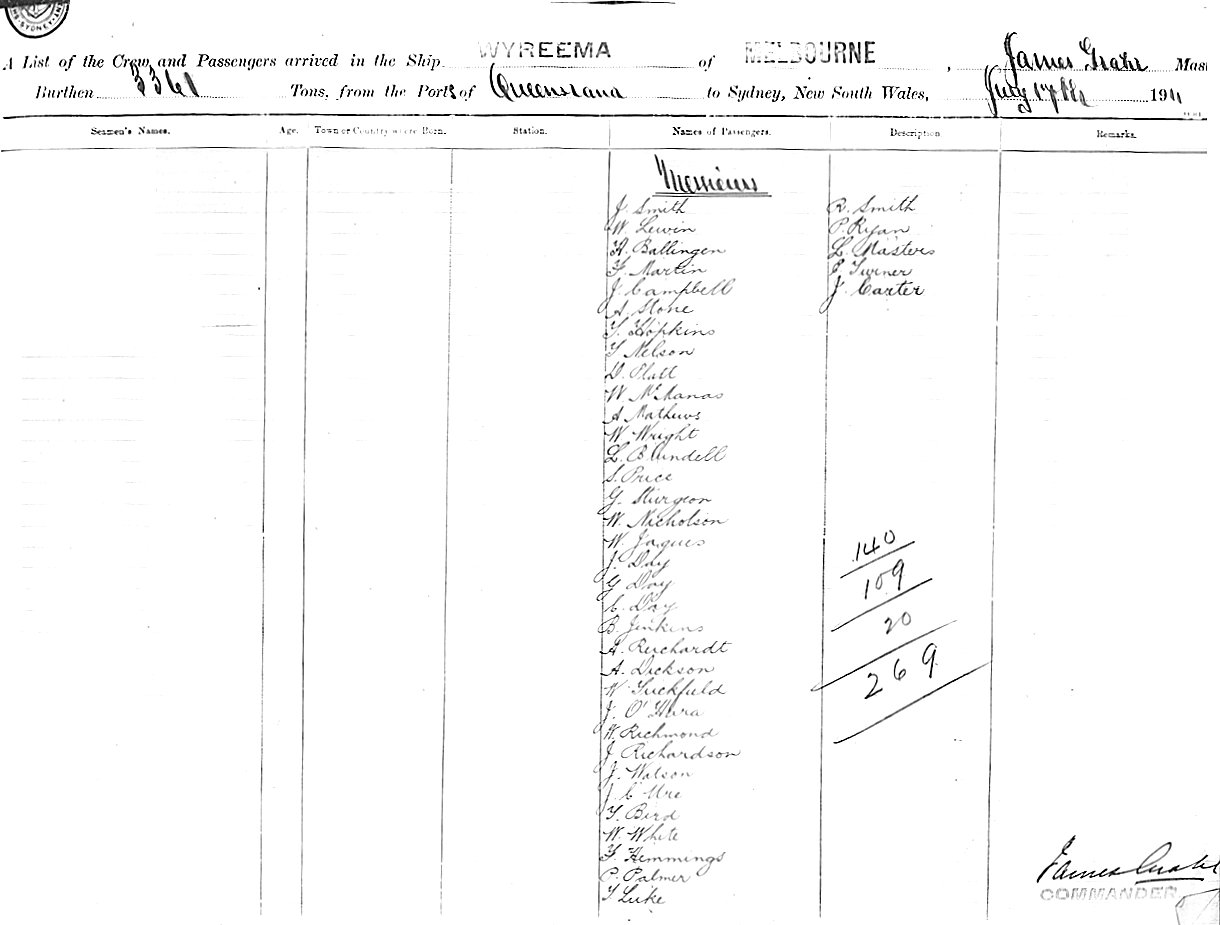 SYDNEY
A List of the Crew and Passengers arrived in the Ship WYREEMA of MELBOURNE, James Mas
Burthen 3361 Tons, from the Ports of Queensland to Sydney, New South Wales, July 17th 1911
Seamen's Names. Age. Town or Country where Born. Station. Names of Passengers. Description Remarks.
Messieurs
J. Smith R. Smith
W. Lewin P. Ryan
A. Ballingen L. Masters
F. Martin J. Turner
J. Campbell J. Carter
A. Stone
T. Hopkins
T Nelson
D. Platt
W. McManas
A Mathews
W. Wright
L. Blundell
S. Price
G. Sturgeon
W. Nicholson
W. Jaques
J. Day
G Day
C. Day
B. Jenkins
A. Reichardt
A. Dickson
W Tuckfield
J. O'Hara
W. Richmond
J. Richardson
J. Watson
J C Ure
T. Bird
W. White
F. Hemmings
P. Palmer
T Luke
140
109
20
269
James
COMMANDER